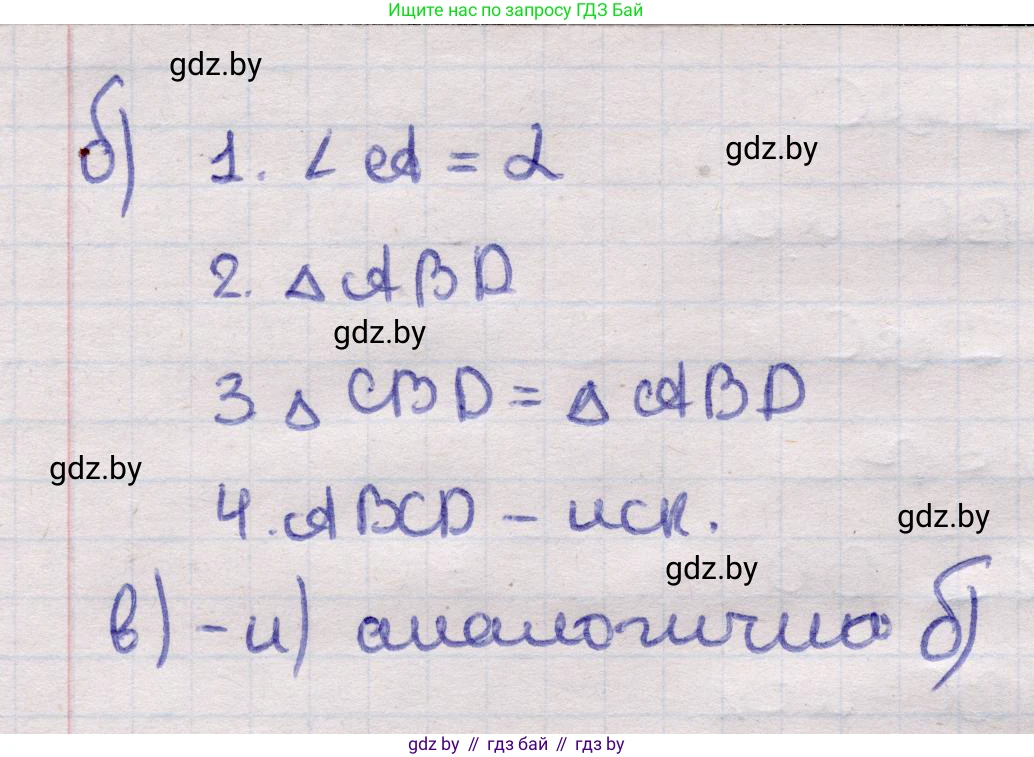 Ищите нас по запросу ГДЗ Бай
gdz.by
б) 1. ∠ A = α
gdz.by
2. △ ABD
gdz.by
3 △ CBD = △ ABD
gdz.by
4. ABCD – иск.
gdz.by
gdz.by
в) – и) аналогично б)
gdz by // гдз бай // гдз by